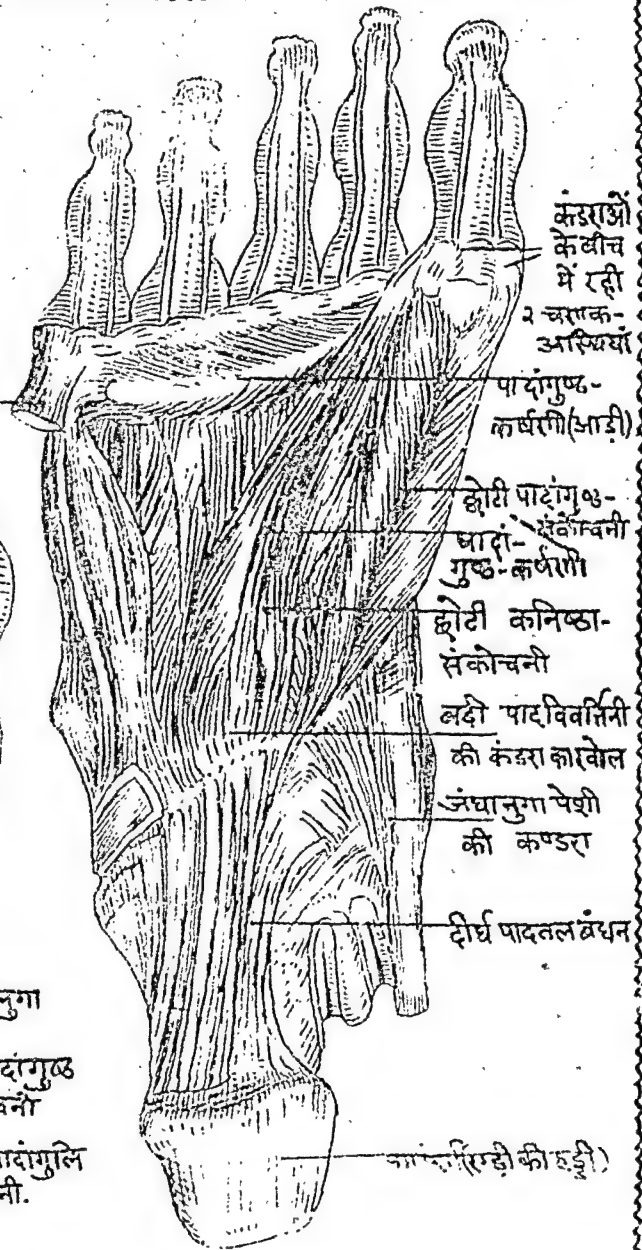 कंडराओं
के बीच
में रही
२ चणक-
अस्थियां
पादांगुष्ठ-
कर्षणी (आड़ी)
छोटी पादांगुष्ठ-
संकोचनी
पादां-
गुष्ठ-कर्षणी
छोटी कनिष्ठा-
संकोचनी
बदी पादविवर्त्तिनी
की कंडरा का खोल
जंघानुगा पेशी
की कण्डरा
दीर्घ पादतल बंधन
नुगा
दांगुष्ठ
पादांगुलि
नी.
(एड़ी की हड्डी)